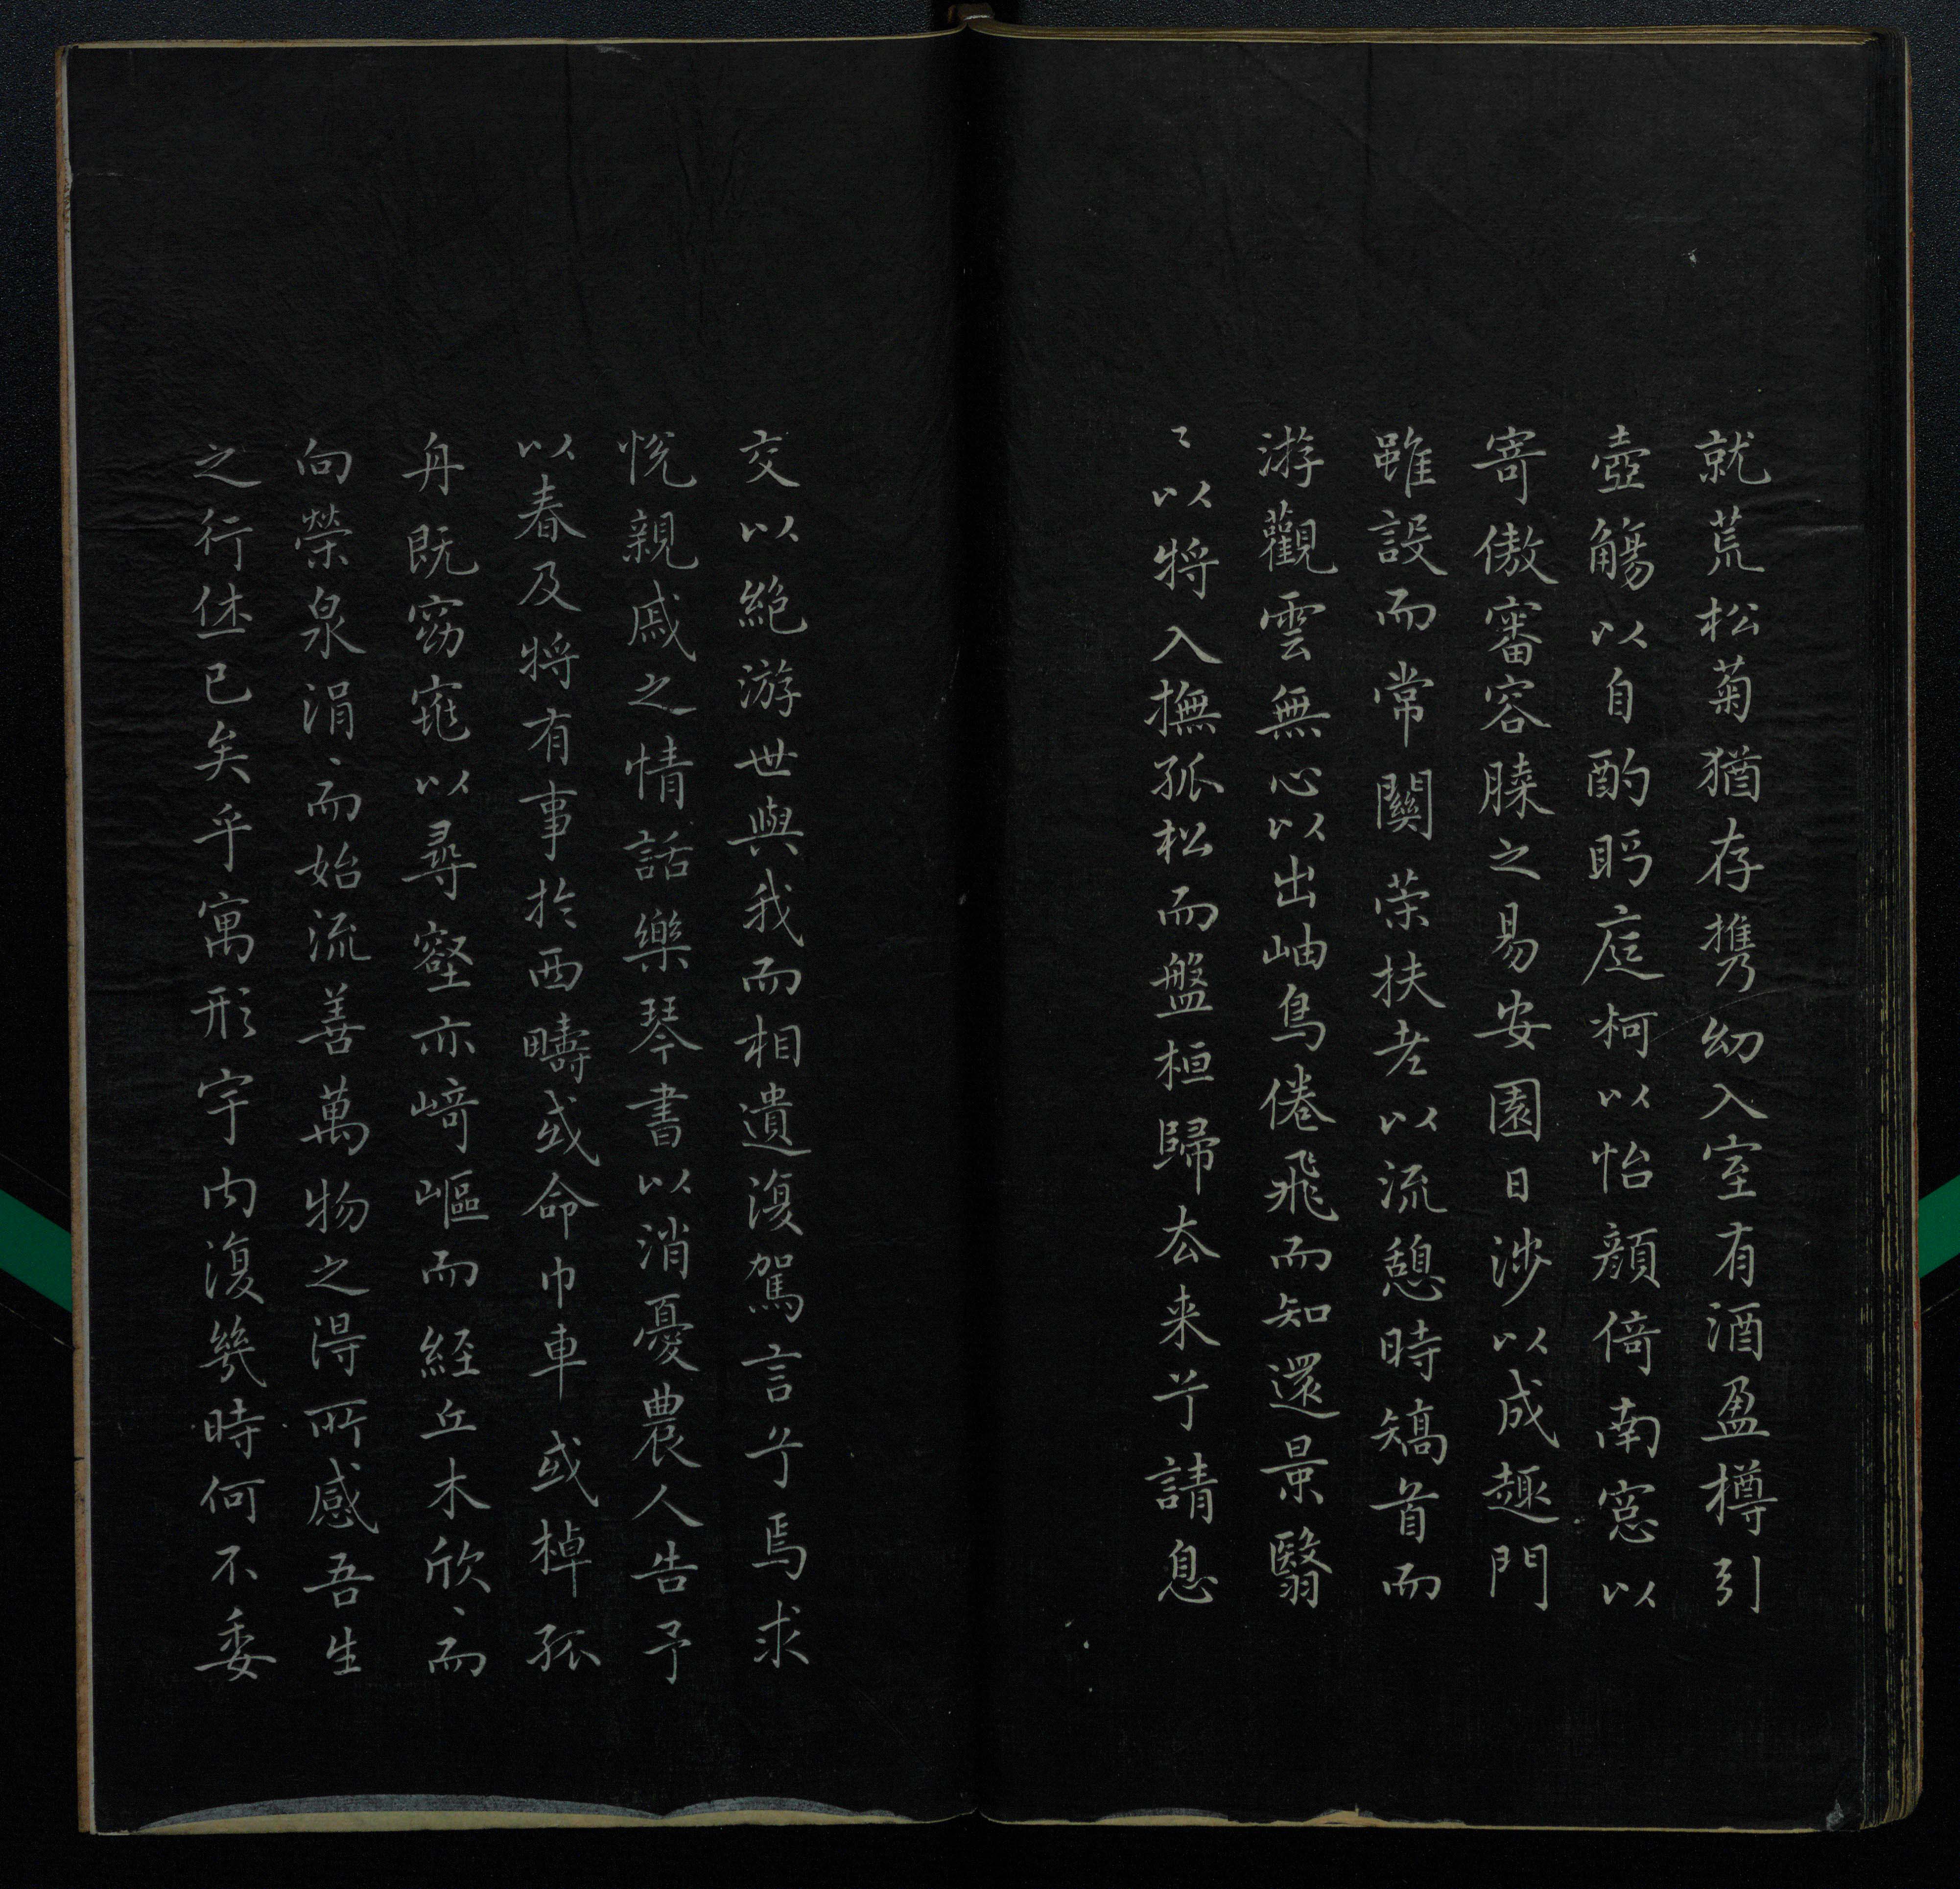 就荒松菊猶存携幼入室有酒盈樽引
壺觴以自酌眄庭柯以怡顏倚南窓以
寄傲審容膝之易安園日涉以成趣門
雖設而常関策扶老以流憩時矯首而
游觀雲無心以出岫鳥倦飛而知還景翳
〻以将入撫孤松而盤桓歸去来兮請息
交以絶游世與我而相遺復駕言兮焉求
悦親戚之情話樂琴書以消憂農人告予
以春及将有事於西疇或命巾車或棹孤
舟既窈窕以尋壑亦崎嶇而経丘木欣〻而
向榮泉涓〻而始流善萬物之得所感吾生
之行休已矣乎寓形宇内復幾時何不委